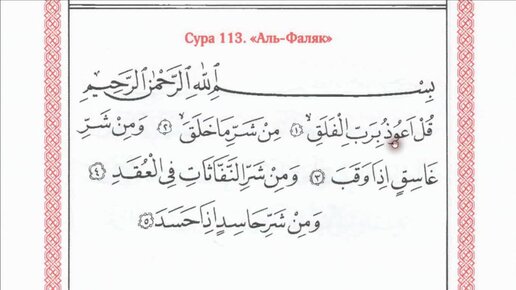 Сура 113. «Аль-Фаляк»
بِسْمِ اللهِ الرَّحْمٰنِ الرَّحِيمِ
قُلْ اَعُوذُ بِرَبِّ الْفَلَقِ ﴿١﴾ مِنْ شَرِّ مَا خَلَقَ ﴿٢﴾ وَمِنْ شَرِّ
غَاسِقٍ اِذَا وَقَبَ ﴿٣﴾ وَمِنْ شَرِّ النَّفَّاثَاتِ فِي الْعُقَدِ ﴿٤﴾
وَمِنْ شَرِّ حَاسِدٍ اِذَا حَسَدَ ﴿٥﴾